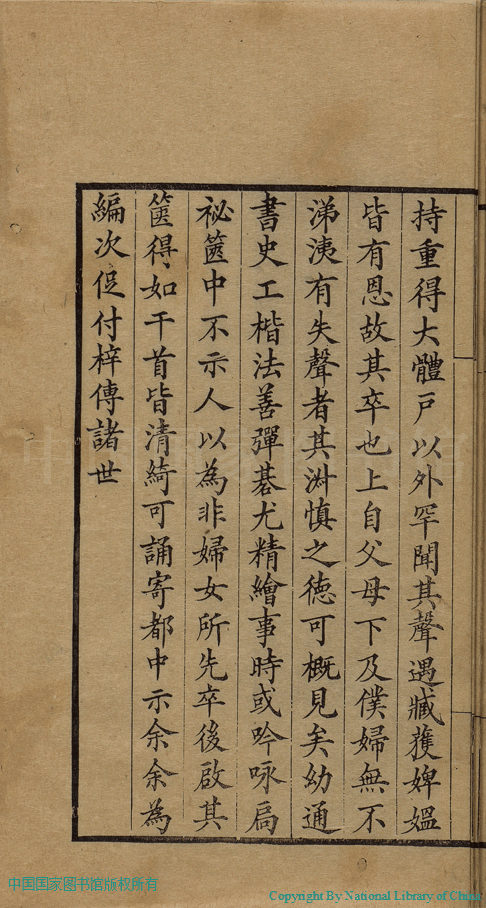 持重得大體戸以外罕聞其聲遇臧獲婢媼
皆有恩故其卒也上自父母下及僕婦無不
涕洟有失聲者其淋慎之徳可概見矣幼通
書史工楷法善彈碁尤精繪事時或吟咏扃
祕篋中不示人以為非婦女所先卒後啟其
篋得如干首皆清綺可誦寄都中示余余為
編次促付梓傳諸世
中国国家图书馆版权所有
Copyright By National Library of China